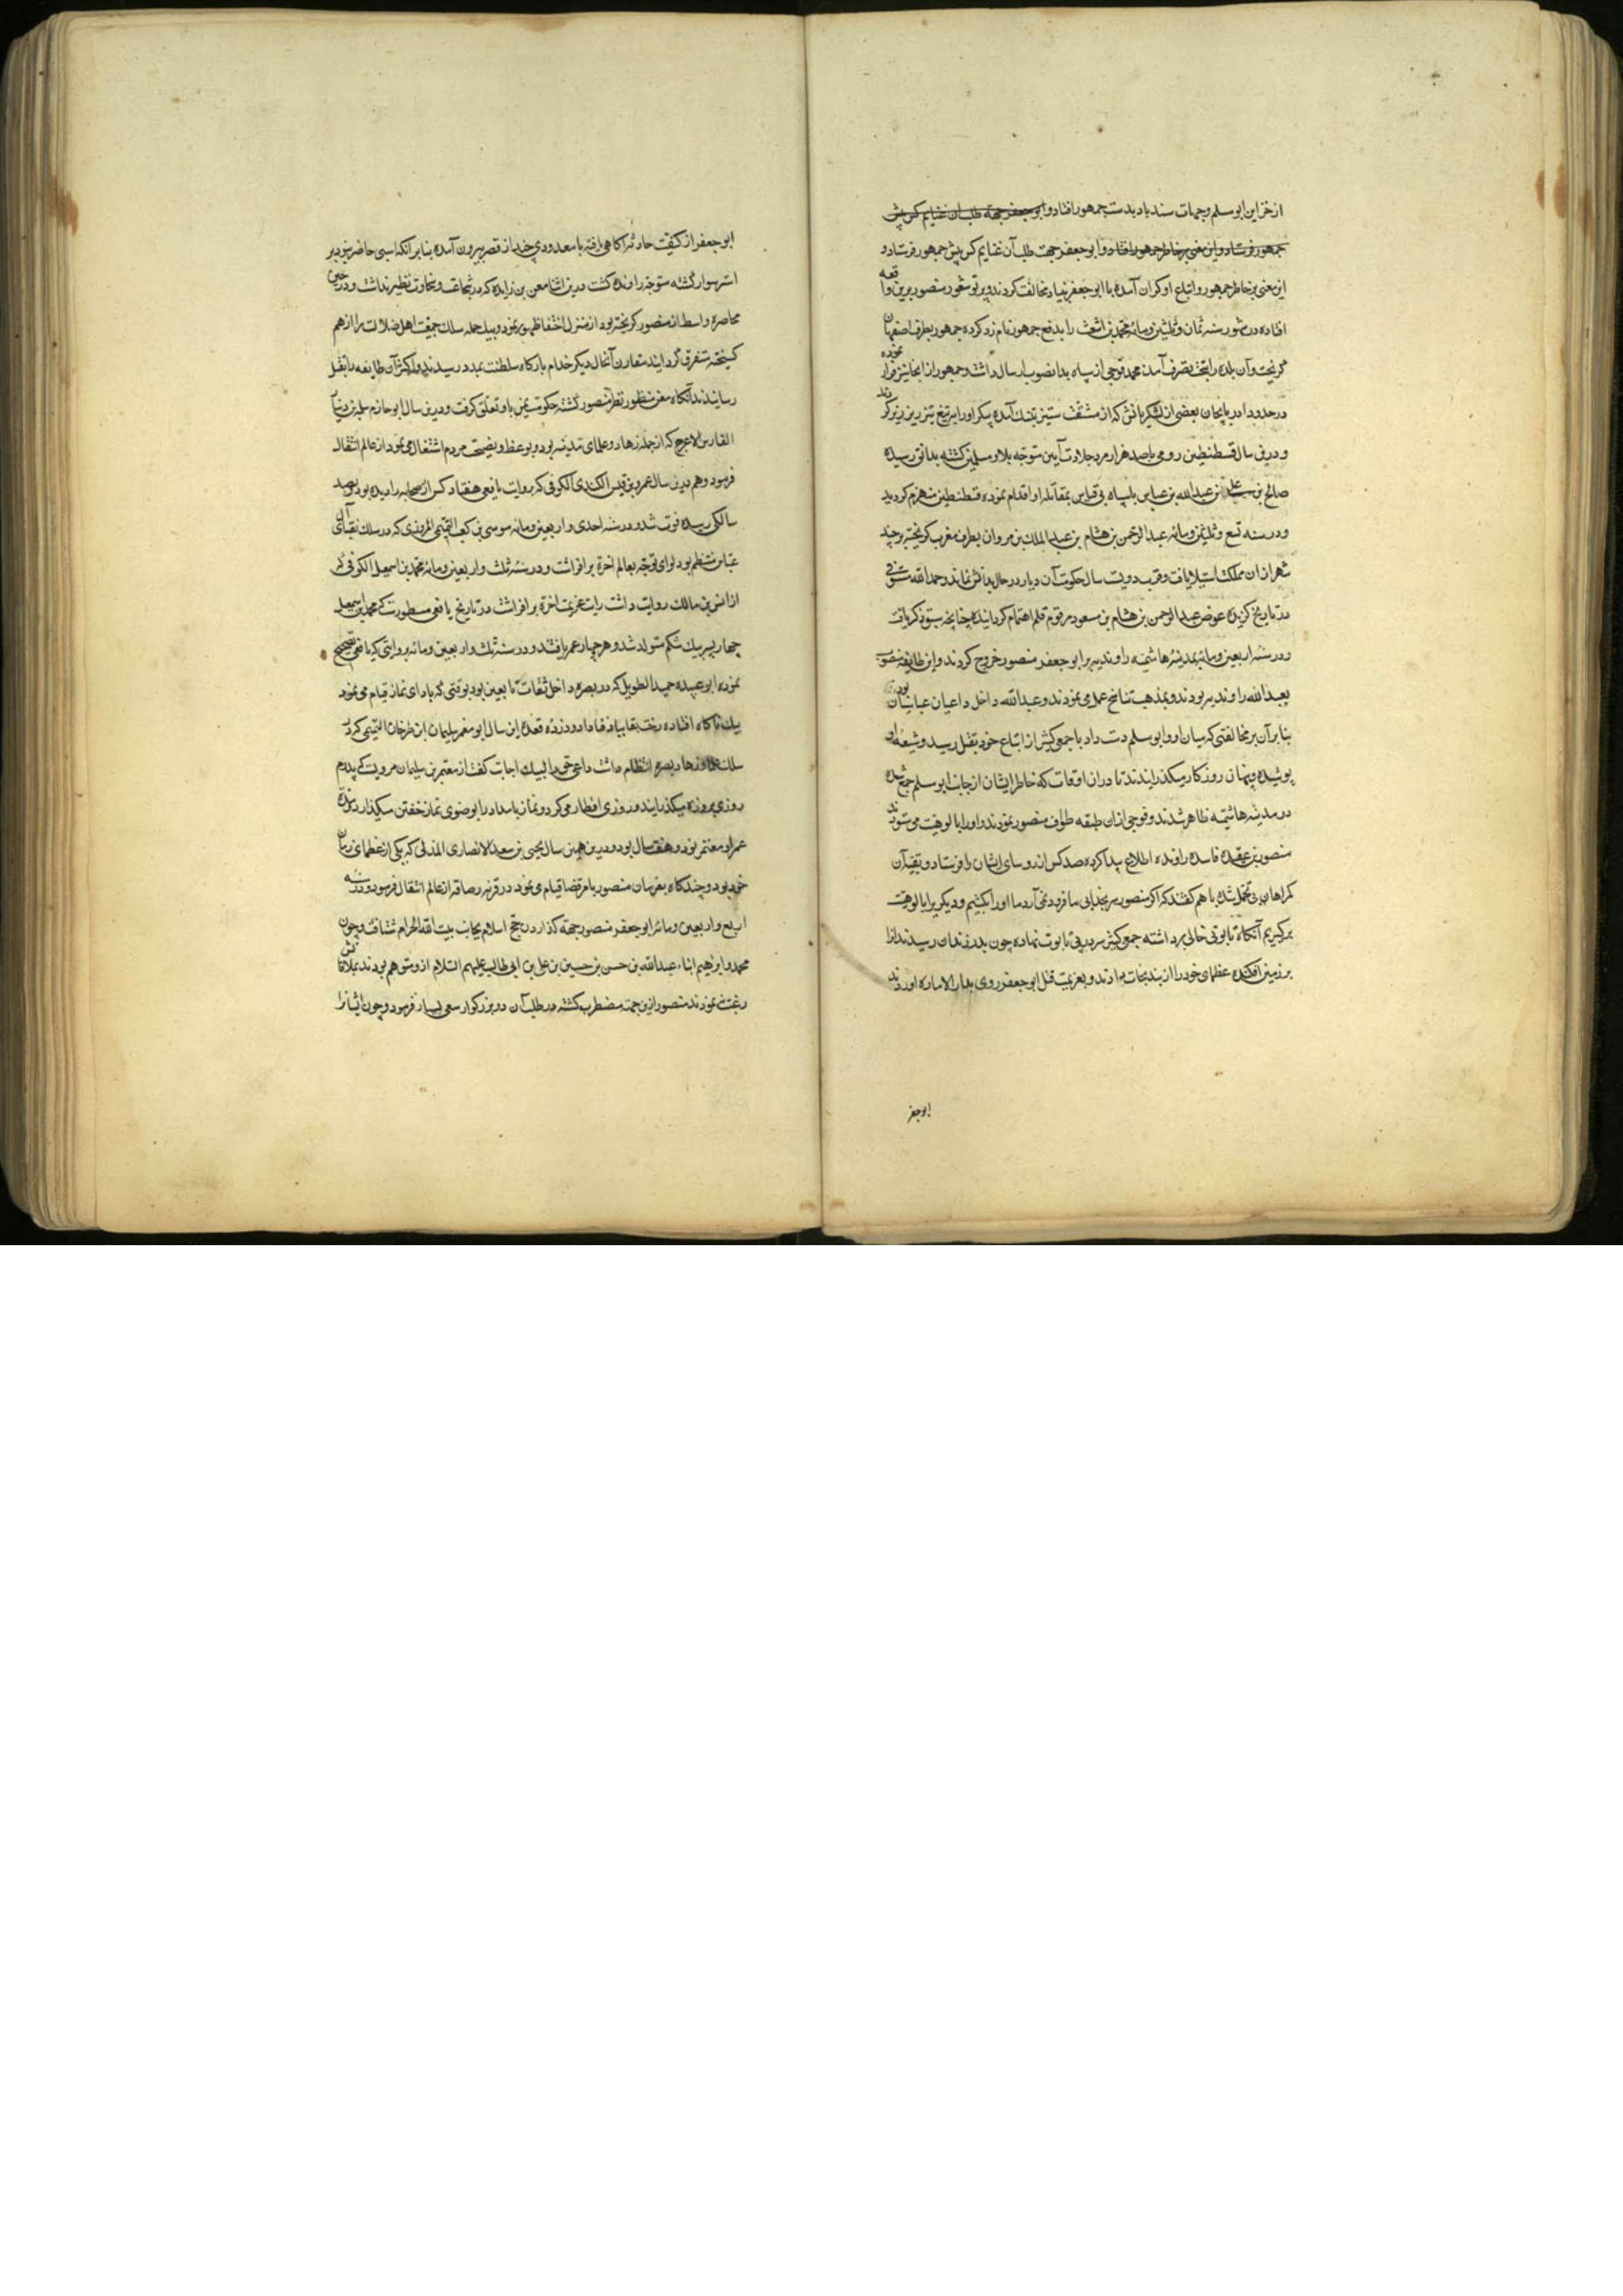 از خزاین ابو مسلم و جهات سندباد بدست جمهور افتاد و ابو جعفر جهة طلب آن غنایم کس پیش
جمهور فرستاد و این معنی بر خاطر جمهور افتاد و ابو جعفر جهت طلب آن غنایم کس پیش جمهور فرستاد و
این معنی بر خاطر جمهور و اتباع او کران آمده با ابو جعفر بنیاد مخالفت کردند و پرتو شعور منصور برین واقعه
افتاده در شهور سنه ثمان و ثلثین ومائه محمد بن اشعث را بدفع جمهور نام زد کرده جمهور بطرف اصفهان
کریخت و آن بلده را بتحت تصرف آمده محمد فوجی از سپاه بدانصوب ارسال داشت و جمهور از انجا نیز فرار نموده
در حدود ادربایجان بعضی از لشکریانش که از مشقت ستیز بتنک آمده پیکر او را بتیغ تیز ریز ریز کردند
و درین سال قسطنطین رومی با صد هزار مرد جلادت آیین متوجه بلاد مسلمین کشته بدانق رسیده
صالح بن علی بن عبدالله بن عباس با سپاه بی قیاس بمقابله او اقدام نموده قسطنطین منهزم کردید
و در سنه تسع و ثلثین ومائه عبدالرحمن بن هشام بن عبدالملک بن مروان بطرف مغرب کریخته بر چند
شهر از ان مملکت استیلا یافت و قرب دویست سال حکومت آن دیار در خاندانش بماند و حمدالله مستوفی
در تاریخ کزیده عوض عبدالرحمن بن هشام بن مسعود مرقوم قلم اهتمام کردانیده چنانچه سبق ذکر یافت
و در سنه اربعین ومائه بمدینه هاشمیه راوندیه بر ابو جعفر منصور خروج کردند و این طایفه منسوب
بعبدالله راوندیه بودند و بمذهب تناسخ عمل می نمودند و عبدالله داخل داعیان عباسیان بود
بنا بر آن بر مخالفتی که میان او و ابو مسلم دست داد با جمعی کثیر از اتباع خود بقتل رسید و شیعه او
پوشیده و پنهان روزکار میکذرانیدند تا در ان اوقات که خاطر ایشان از جانب ابو مسلم جمع شده
در مدینه هاشمیه ظاهر شدند و فوجی از ان طبقه طواف منصور نمودند و او را بالوهیت می ستودند
منصور بر عقیده فاسده راوندیه اطلاع پیدا کرده صد کس از روسای ایشان را فرستاد و بقیه آن
کمراهان بی تحمل شده با هم کفتند که اکر منصور سر بخدایی ما فرود نمی آرد ما او را بکشیم و دیکری را بالوهیت
برکیریم آنکاه تابوتی خالی برداشته جمعی کثیر سر در پی تابوت نهاده چون بدر زندان رسیدند آنرا
بر زمین افکنده عظمای خود را از بند نجات دادند و بعزیمت قتل ابو جعفر روی بدار الاماره اوردند
ابو جعفر
ابو جعفر از کیفیت حادثه آکاهی یافته با معدودی چند از قصر بیرون آمده بنابر آنکه اسبی حاضر نبود بر
استر سوار کشته متوجه راوندیه کشت درین اثنا معن بن زایده که در شجاعت و سخاوت نظیر نداشت و در حین
محاصره واسط از منصور کریخته بود از منزل اختفا ظهور نمود و بیک حمله سلک جمعیت اهل ضلالت را از هم
کسیخته متفرق کردانید مقارن آنحال دیکر خدام بارکاه سلطنت بمدد رسیدند و اکثر آن طایفه را بقتل
رسانیدند آنکاه معن منظور نظر منصور کشته حکومت یمن باو تعلق کرفت و درین سال ابو حازم سلمه بن دینار
القارس الاعرج که از جمله زهاد و علمای مدینه بود و بوعظ و نصیحت مردم اشتغال می نمود از عالم انتقال
فرمود و هم درین سال عمرو بن قیس الکندی الکوفی که بروایت یافعی هفتاد کس از صحابه را دیده بود و بصد
سالکی رسیده فوت شد و در سنه احدی و اربعین ومائه موسی بن کعب التمیمی المروزی که در سلک نقبای آل
عباس منتظم بود لوای توجه بعالم اخرة بر افراشت و در سنه ثلث و اربعین ومائه محمد بن اسمعیل الکوفی که
از انس بن مالک روایت داشت رایت عزیمت اخرة بر افراشت در تاریخ یافعی مسطورست که محمد بن اسمعیل
چهار پسر بیک شکم متولد شد و هر چهار عمر یافتند و در سنه ثلث و اربعین ومائه بروایتی که یافعی تصحیح
نموده ابو عبیده حمید الطویل که در بصره داخل ثقات تابعین بود بوقتی که بادای نماز قیام می نمود
بیک ناکاه افتاده رخت بقا بباد فنا داد و در ذی قعده این سال ابو معمر سلیمان ابن طرخان التیمی که در
سلک علما و زهاد بصره انتظام داشت داعی حق را لبیک اجابت کفت از معتمر بن سلیمان مرویست که پدرم
روزی بروزه میکذرانید و روزی افطار می کرد و نماز بامداد را بوضوی نماز خفتن میکذارد و مدة
عمر او معتمر نود و هفت سال بود و درین همین سال یحیی بن سعد الانصاری المدنی که یکی از عظمای زمان
خود بود و چند کاه بفرمان منصور بامر قضا قیام می نمود در قریه رصافه از عالم انتقال فرمود و در سنه
اربع و اربعین ومائه ابو جعفر منصور جهة کذاردن حج اسلام بجانب بیت الله الحرام شتافت و چون
محمد و ابراهیم ابناء عبدالله بن حسن بن حسین بن علی بن ابی طالب علیهم السلام از و متوهم بودند بملاقاتش
رغبت نمودند منصور ازین جهة مضطرب کشته در طلب آن دو بزرکوار سعی بسیار فرمود و چون ایشانرا